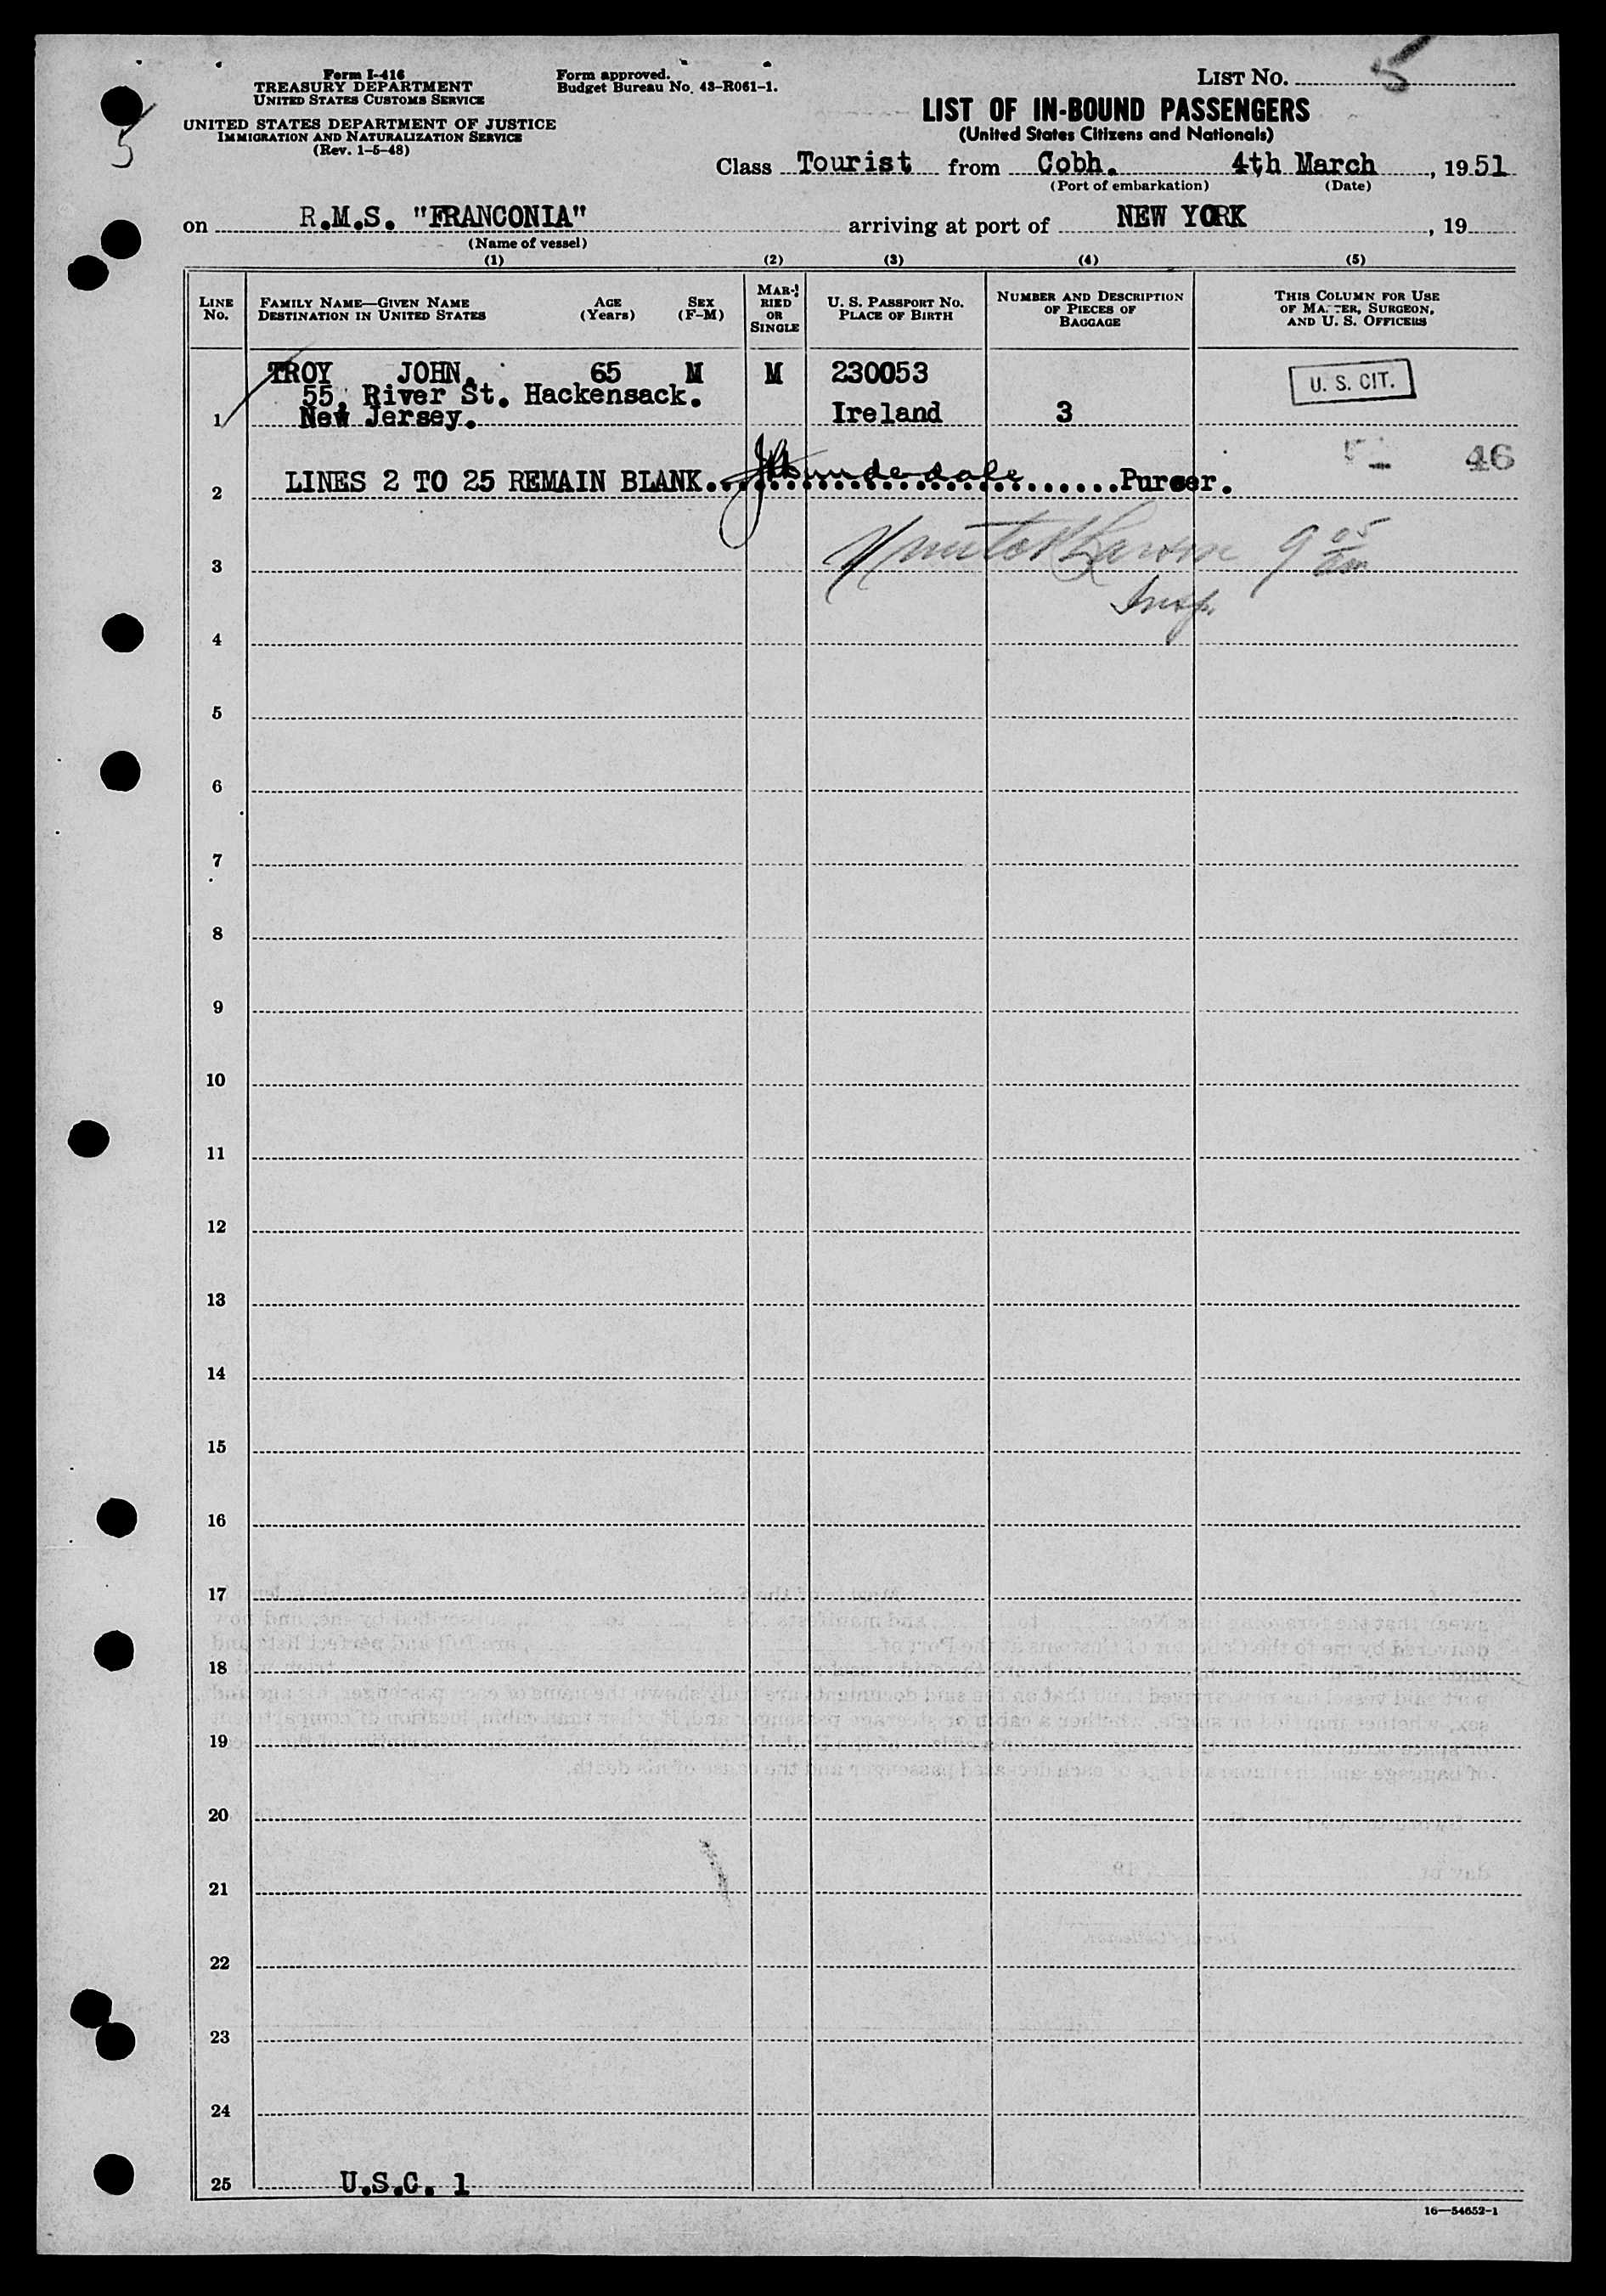 Form I-416
TREASURY DEPARTMENT
UNITED STATES CUSTOMS SERVICE
UNITED STATES DEPARTMENT OF JUSTICE
IMMIGRATION AND NATURALIZATION SERVICE
(Rev. 1-5-48)
Form approved.
Budget Bureau No. 43-R061-1.
LIST NO. 5
5
LIST OF IN-BOUND PASSENGERS
(United States Citizens and Nationals)
Class Tourist from Cobh. 4th March, 1951
(Port of embarkation) (Date)
on R.M.S. "FRANCONIA" arriving at port of NEW YORK, 19
(Name of vessel)
(1) (2) (3) (4) (5)
LINE NO. FAMILY NAME—GIVEN NAME DESTINATION IN UNITED STATES AGE (Years) SEX (F-M) MARRIED OR SINGLE U. S. PASSPORT NO. PLACE OF BIRTH NUMBER AND DESCRIPTION OF PIECES OF BAGGAGE THIS COLUMN FOR USE OF MASTER, SURGEON, AND U. S. OFFICERS
TROY JOHN. 65 M M 230053 U. S. CIT.
55, River St. Hackensack.
1 New Jersey. Ireland 3
46
2 LINES 2 TO 25 REMAIN BLANK. Purser.
9 05 am
3
Insp.
4
5
6
7
8
9
10
11
12
13
14
15
16
17
18
19
20
21
22
23
24
25 U.S.C. 1
16—54652-1